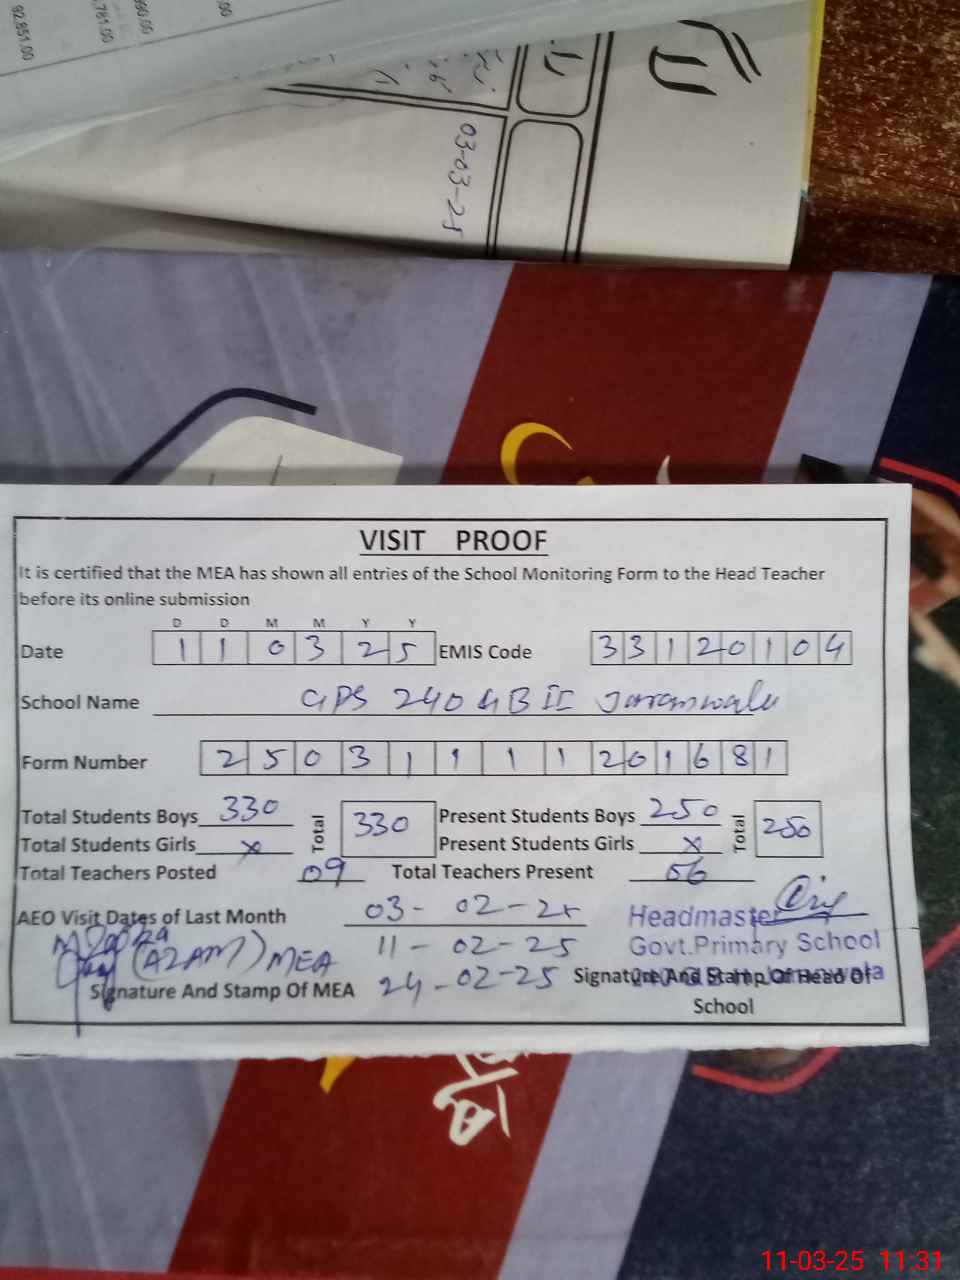 92,851.00
,781.00
960.00
.00
03-03-25
VISIT PROOF
It is certified that the MEA has shown all entries of the School Monitoring Form to the Head Teacher
before its online submission
D D M M Y Y
Date 1 1 0 3 2 5 EMIS Code 3 3 1 2 0 1 0 4
School Name GPS 240 GB II Jaranwala
Form Number 2 5 0 3 1 1 1 1 2 0 1 6 8 1
Total Students Boys 330 Total 330 Present Students Boys 250 Total 250
Total Students Girls x Present Students Girls x
Total Teachers Posted 09 Total Teachers Present 06
AEO Visit Dates of Last Month 03-02-25
Headmaster
11-02-25 Govt.Primary School
(AZAM) MEA
24-02-25
Signature And Stamp Of MEA Signature And Stamp Of Head Of
School
11-03-25 11:31